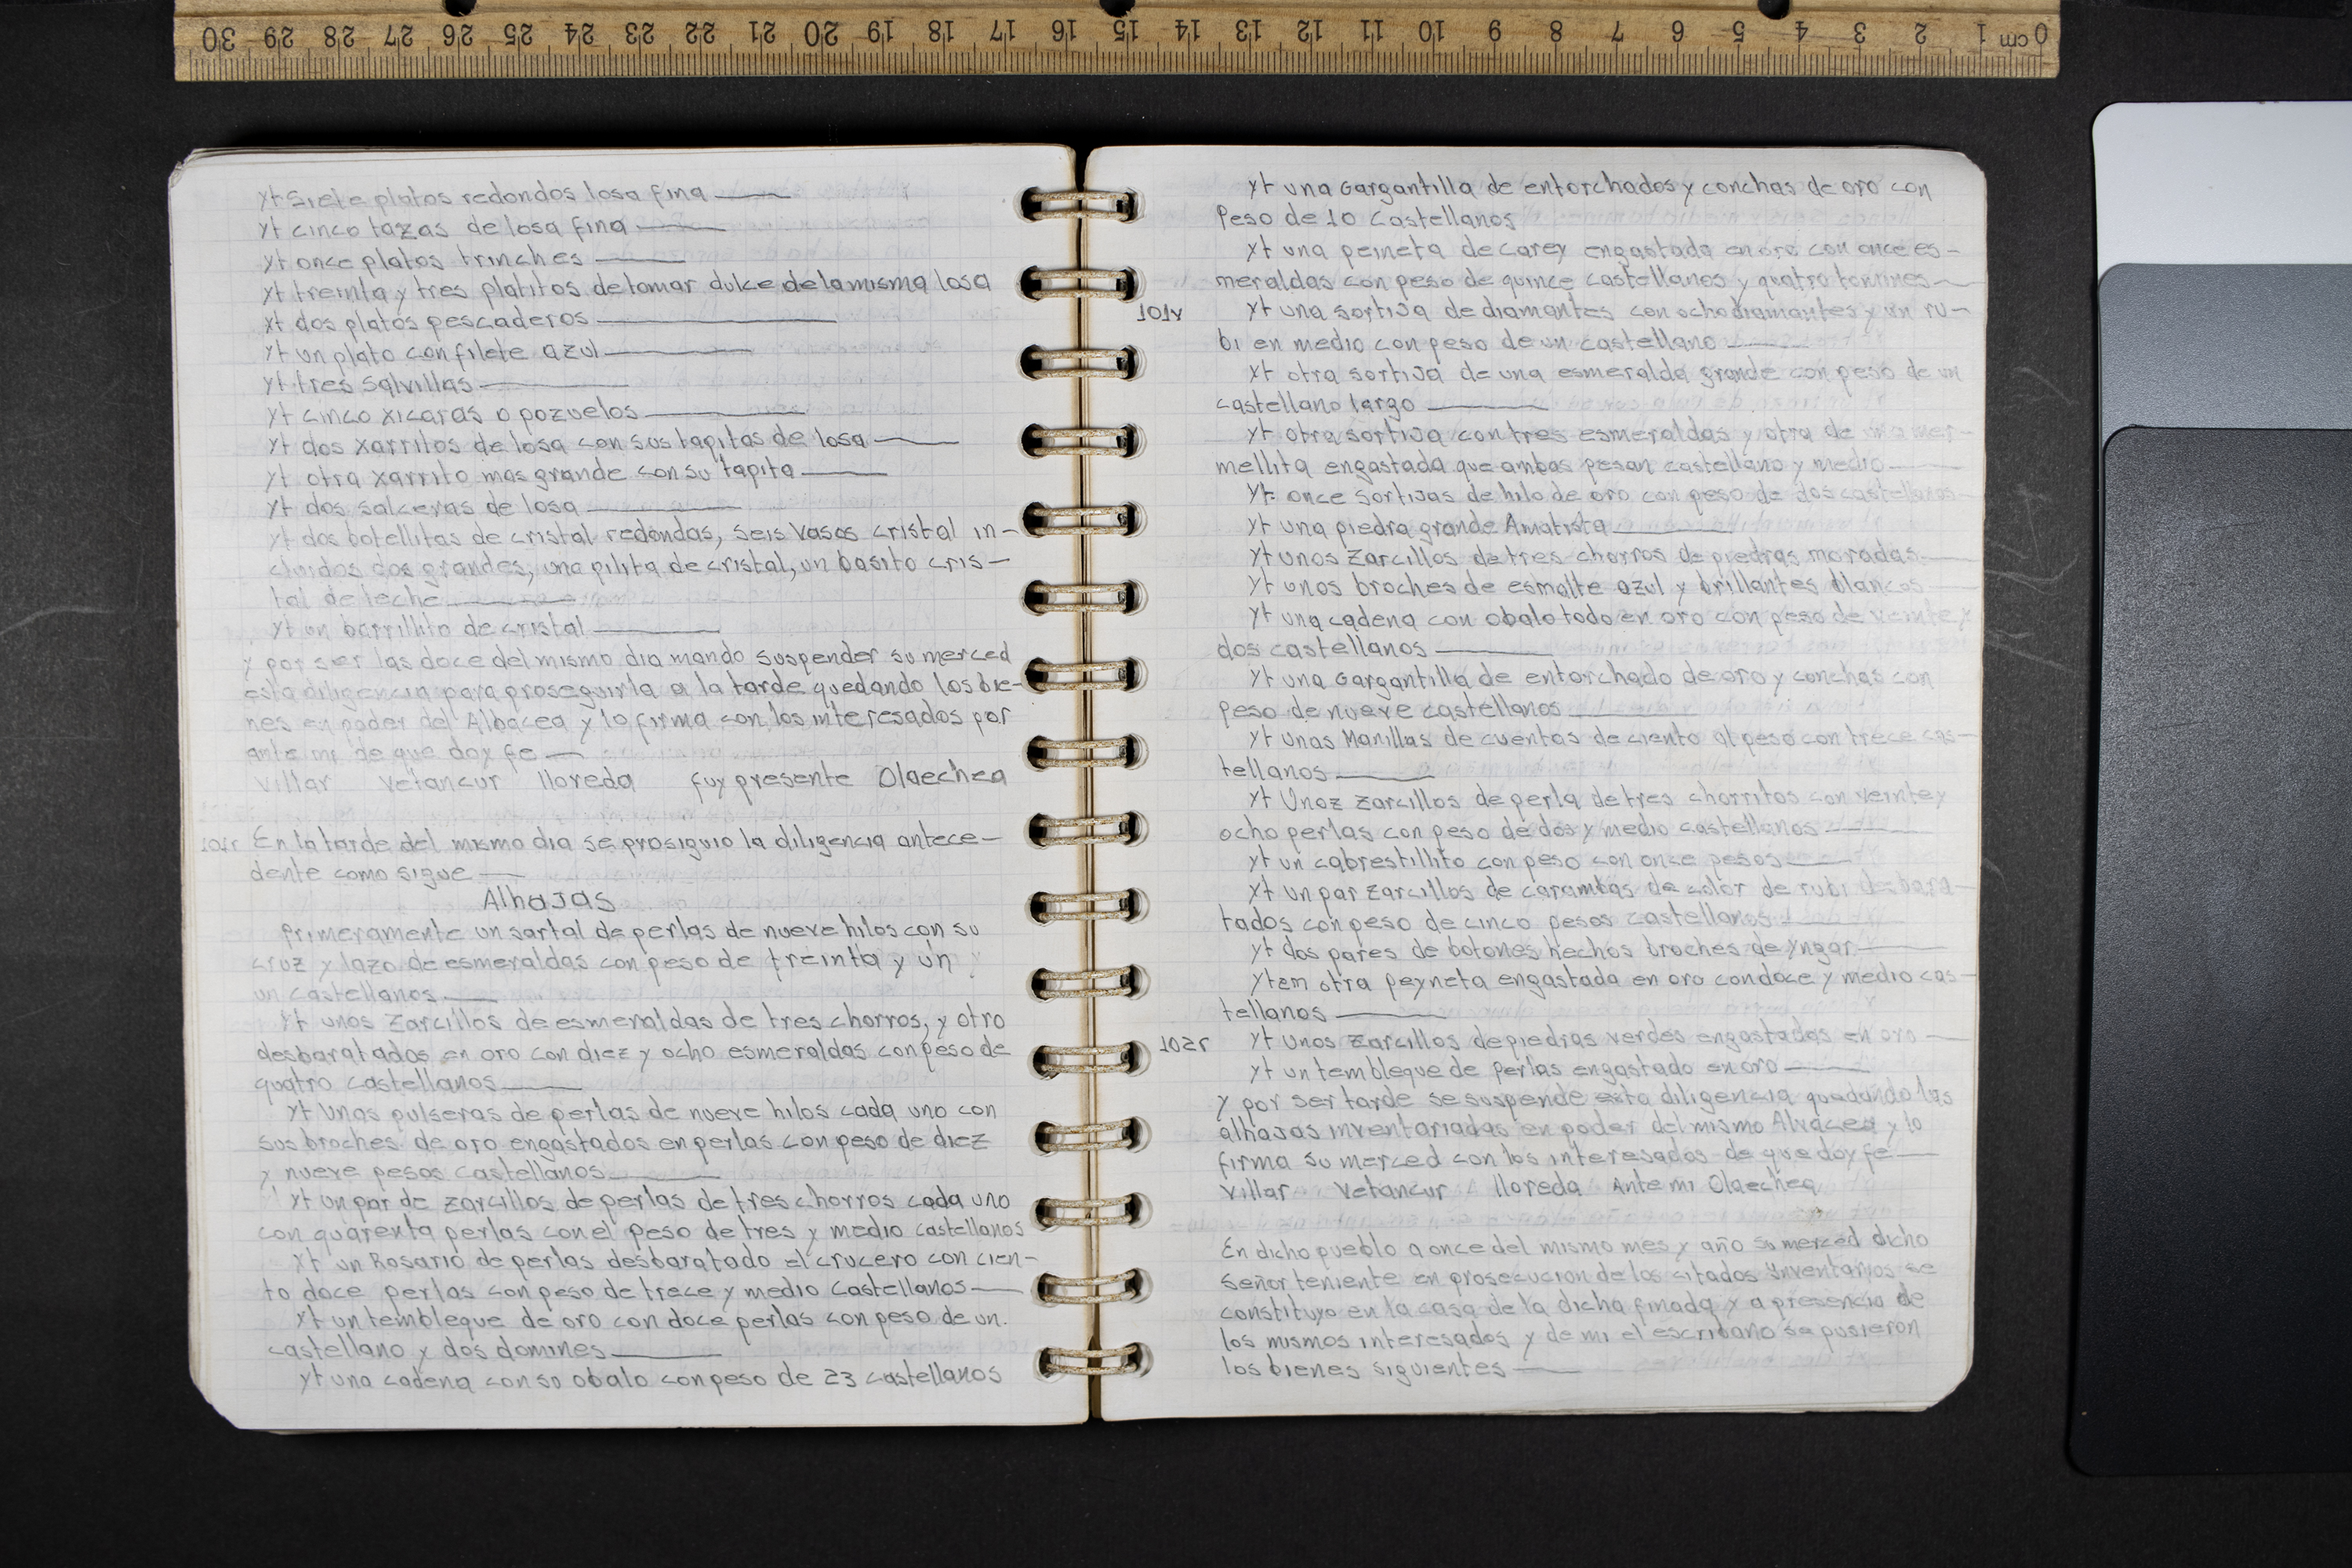 30 29 28 27 26 25 24 23 22 21 20 19 18 17 16 15 14 13 12 11 10 9 8 7 6 5 4 3 2 1 cm 0
yt Siete platos redondos losa fina
yt cinco tazas de losa fina
yt once platos trinches
yt treinta y tres platitos de tomar dulce de la misma losa
yt dos platos pescaderos
yt un plato con filete azul
yt tres Salvillas
yt cinco xicaras o pozuelos
yt dos xarritos de losa con sus tapitas de losa
yt otra xarrito mas grande con su tapita
yt dos salceras de losa
yt dos botellitas de cristal redondas, seis vasos cristal in-
cluidos dos grandes, una pilita de cristal, un basito cris-
tal de leche
yt un barrilito de cristal
y por ser las doce del mismo dia mando suspender su merced
esta diligencia para proseguirla a la tarde quedando los bie-
nes en poder del Albacea y lo firma con los interesados por
ante mi de que doy fe
Villar Vetancur lloreda fuy presente Olaechea
101r En la tarde del mismo dia se prosiguio la diligencia antece-
dente como sigue
Alhajas
Primeramente un sartal de perlas de nueve hilos con su
cruz y lazo de esmeraldas con peso de treinta y un
un castellanos
yt unos Zarcillos de esmeraldas de tres chorros, y otro
desbaratados en oro con diez y ocho esmeraldas con peso de
quatro castellanos
yt Unas pulseras de perlas de nueve hilos cada uno con
sus broches de oro engastados en perlas con peso de diez
y nueve pesos castellanos
yt un par de zarcillos de perlas de tres chorros cada uno
con quarenta perlas con el peso de tres y medio castellanos
yt un Rosario de perlas desbaratado el crucero con cien-
to doce perlas con peso de trece y medio castellanos
yt un tembleque de oro con doce perlas con peso de un
castellano y dos domines
yt una cadena con so obalo con peso de 23 castellanos
yt una Gargantilla de entorchados y conchas de oro con
Peso de 10 Castellanos
yt una peineta de carey engastada en oro con once es-
meraldas con peso de quince castellanos y quatro tomines
101v yt una sortija de diamantes con ocho diamantes y un ru-
bi en medio con peso de un castellano
yt otra sortija de una esmeralda grande con peso de un
castellano largo
yt otra sortija con tres esmeraldas y otra de una mer-
mellita engastada que ambas pesan castellano y medio
yt once sortijas de hilo de oro con peso de dos castellanos
yt una piedra grande Amatista
yt unos Zarcillos de tres chorros de piedras moradas
yt unos broches de esmalte azul y brillantes blancos
yt una cadena con obalo todo en oro con peso de veinte y
dos castellanos
yt una Gargantilla de entorchado de oro y conchas con
peso de nueve castellanos
yt unas Manillas de cuentas de ciento al peso con trece cas-
tellanos
yt Unoz zarcillos de perla de tres chorritos con veinte y
ocho perlas con peso de dos y medio castellanos
yt un cabrestillito con peso con once pesos
yt un par zarcillos de carambas de color de rubi desbara-
tados con peso de cinco pesos castellanos
yt dos pares de botones hechos broches de yngar
ytem otra peyneta engastada en oro con doce y medio cas-
tellanos
102r yt Unos zarcillos de piedras verdes engastadas en oro
yt un tembleque de perlas engastado en oro
y por ser tarde se suspende esta diligencia quedando las
alhajas inventariadas en poder del mismo Alvacea y lo
firma su merced con los interesados de que doy fe
Villar Vetancur lloreda Ante mi Olaechea
En dicho pueblo a once del mismo mes y año su merced dicho
Señor teniente en prosecucion de los citados ynventarios se
constituyo en la casa de la dicha finada y a presencia de
los mismos interesados y de mi el escribano se pusieron
los bienes siguientes